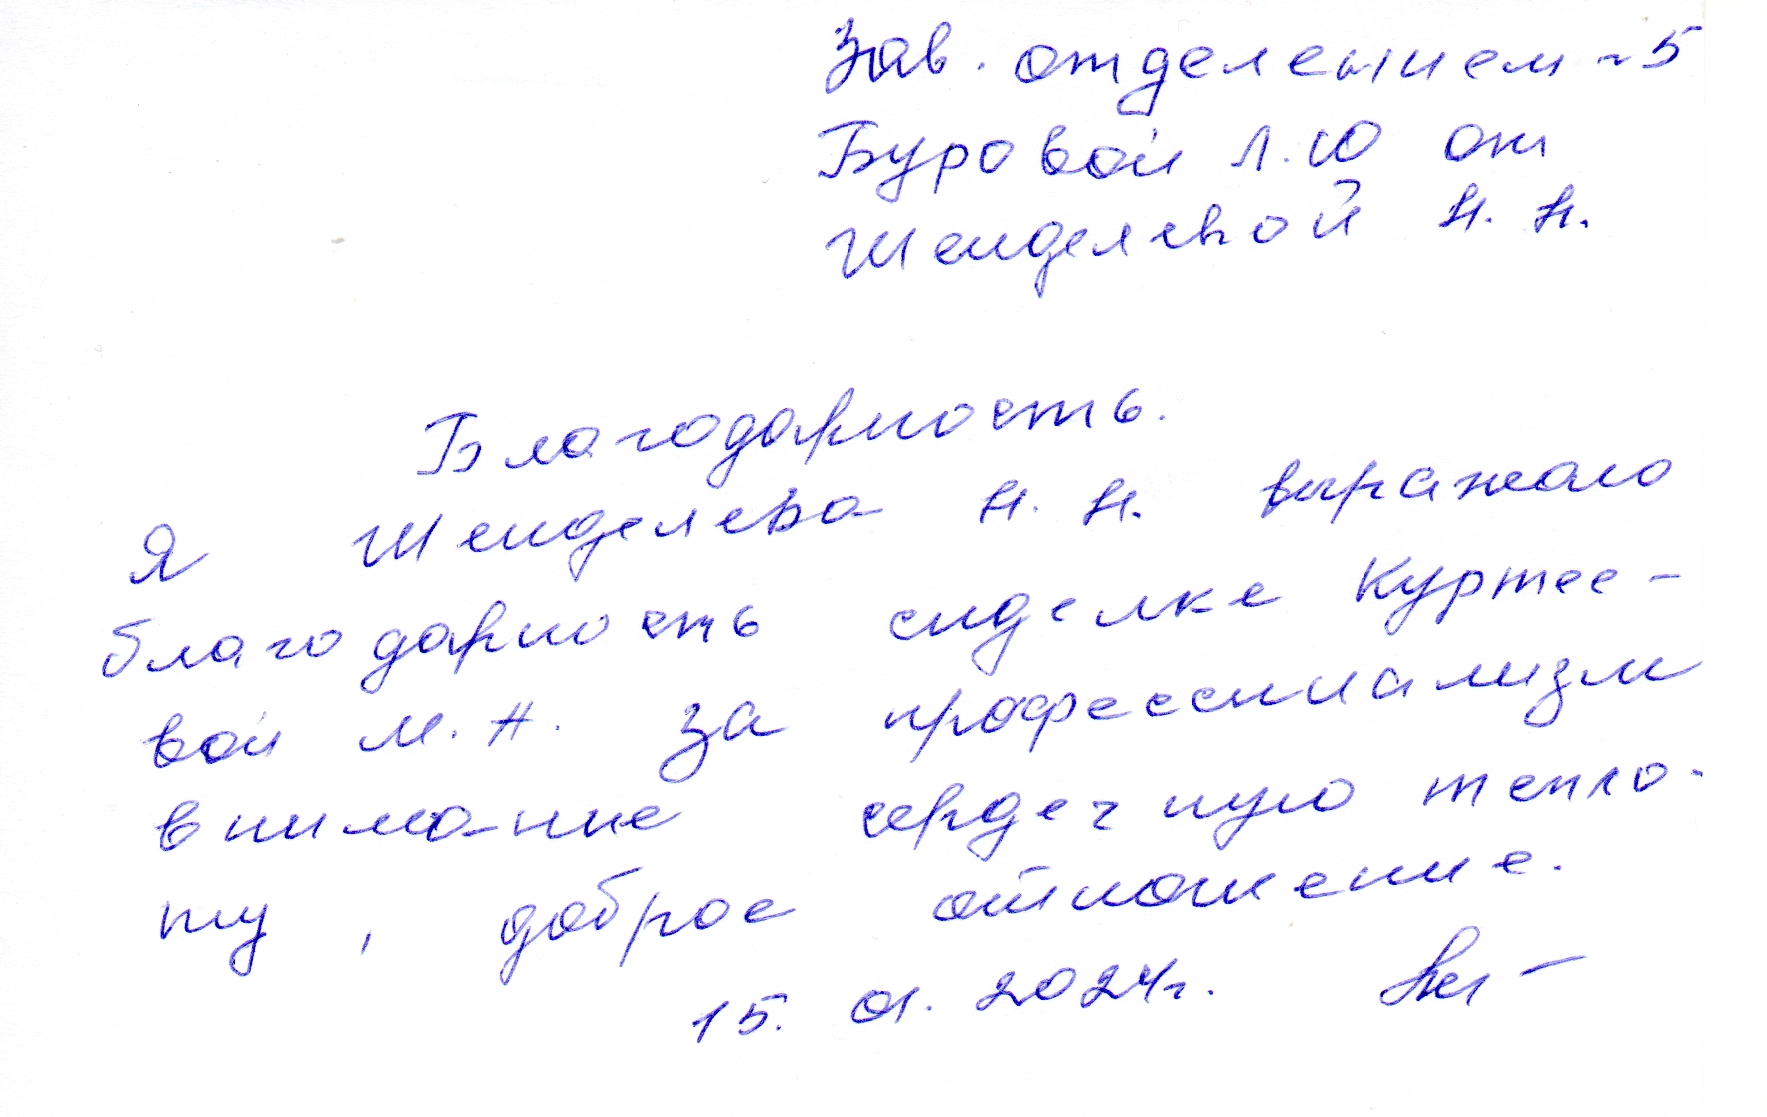 Зав. отделением ~ 5
Буровой Л.Ю от
Шенделевой Н. Н.
Благодарность.
Я Шенделева Н. Н. выражаю
благодарность сиделке Куртее-
вой М. Н. за профессиализм
внимание сердечную тепло-
ту , доброе отношение.
15. 01. 2024г.